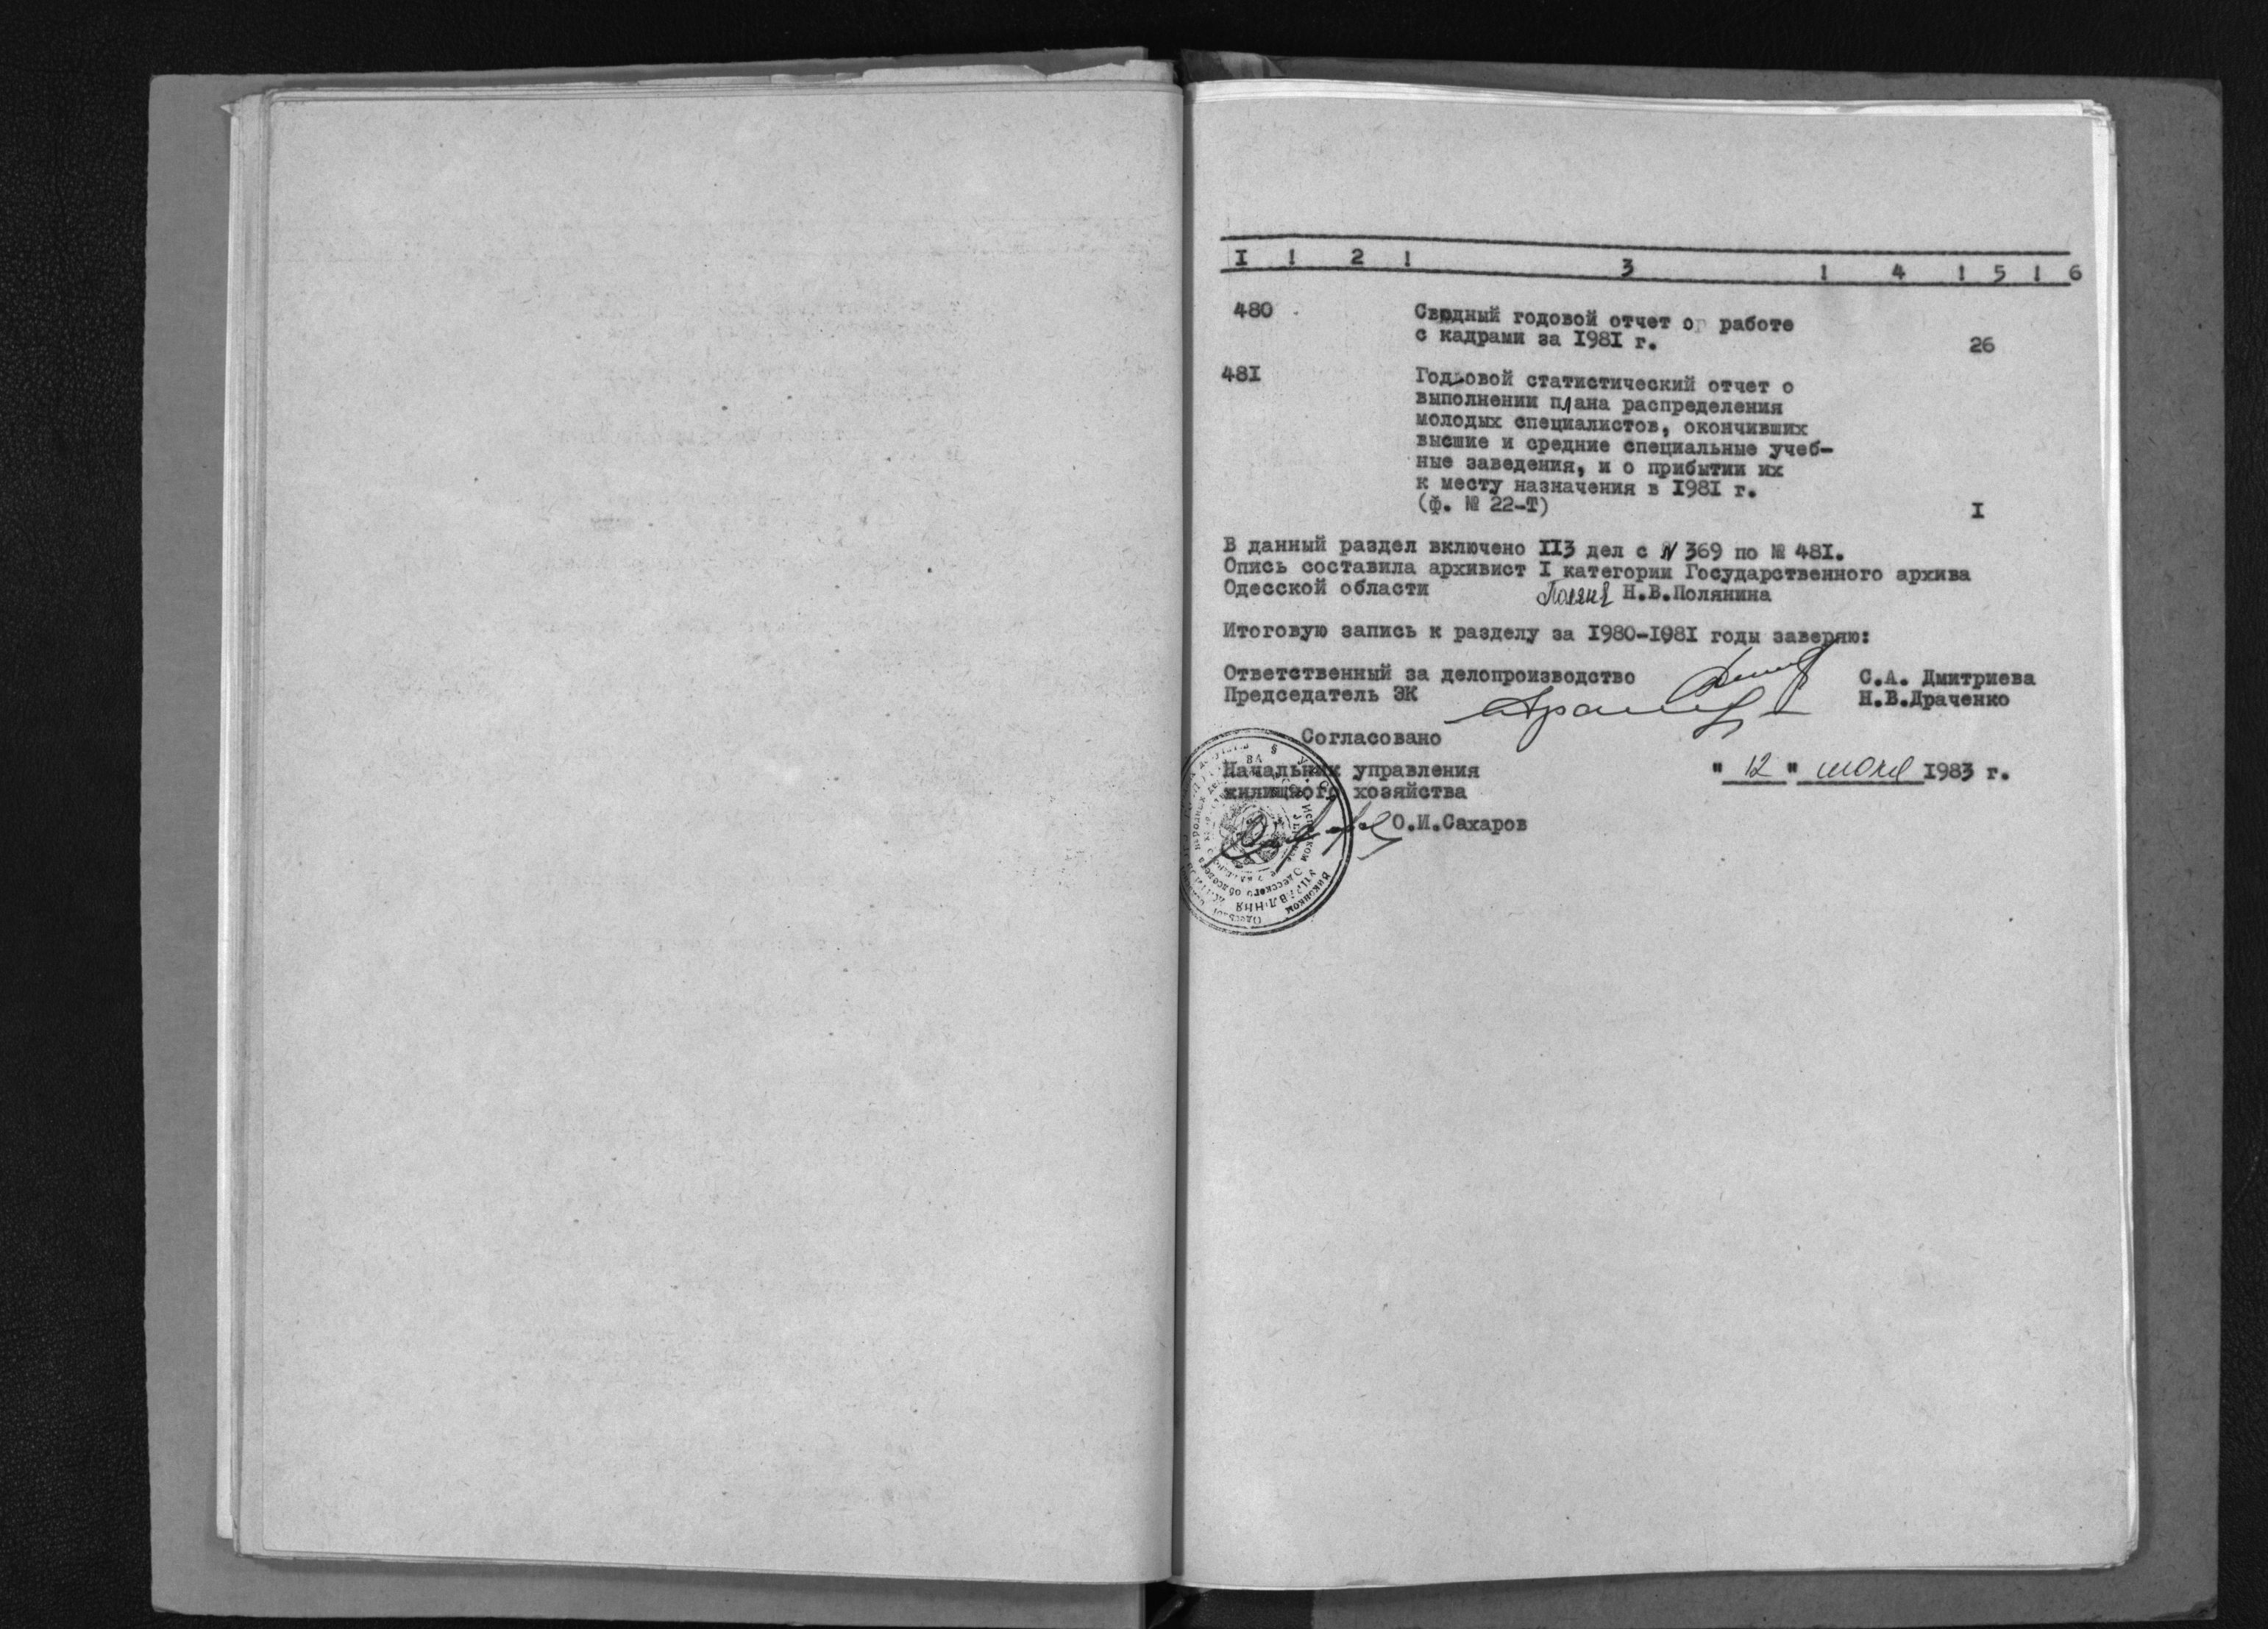 I ! 2 ! 3 ! 4 ! 5 ! 6
480 Сводный годовой отчет о работе
с кадрами за I98I г. 26
48I Годовой статистический отчет о
выполнении плана распределения
молодых специалистов, окончивших
высшие и средние специальные учеб-
ные заведения, и о прибытии их
к месту назначения в I98I г.
(ф. № 22-Т) I
В данный раздел включено II3 дел с № 369 по № 48I.
Опись составила архивист I категории Государственного архива
Одесской области Н.В.Полянина
Итоговую запись к разделу за I980-I98I годы заверяю:
Ответственный за делопроизводство С.А. Дмитриева
Председатель ЭК Н.В.Драченко
Согласовано
Начальник управления " 12 " июля I983 г.
жилищного хозяйства
О.И.Сахаров